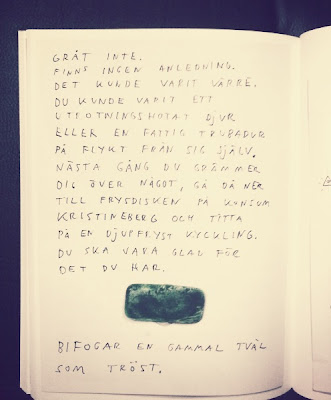 GRÅT INTE.
FINNS INGEN ANLEDNING.
DET KUNDE VARIT VÄRRE.
DU KUNDE VARIT ETT
UTROTNINGSHOTAT DJUR
ELLER EN FATTIG TRUBADUR
PÅ FLYKT FRÅN SIG SJÄLV.
NÄSTA GÅNG DU GRÄMMER
DIG ÖVER NÅGOT, GÅ DÅ NER
TILL FRYSDISKEN PÅ KONSUM
KRISTINEBERG OCH TITTA
PÅ EN DJUPFRYST KYCKLING.
DU SKA VARA GLAD FÖR
DET DU HAR.
BIFOGAR EN GAMMAL TVÅL
SOM TRÖST.